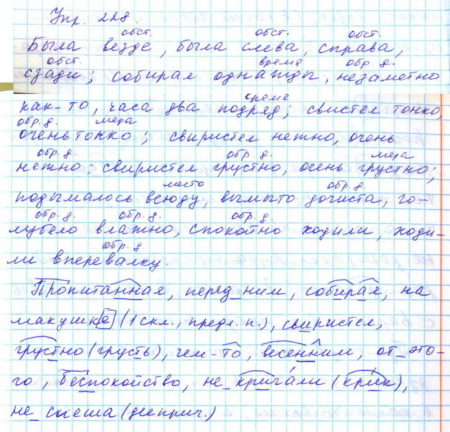 Упр. 228.
обст. обст. обст.
Была везде, была слева, справа,
обст. время обр. д.
сзади; собирая однажды, незаметно
время
как-то, часа два подряд; свистел тонко,
обр. д. мера
очень тонко; свиристел нежно, очень
обр. д. обр. д. мера
нежно; свиристел грустно, очень грустно;
место обр. д.
подымалось всюду, вымыто дочиста, го-
обр. д. обр. д. обр. д.
лубело влажно, спокойно ходили, ходи-
обр. д
ли вперевалку.
Пропитанная, перед_ним, собирая, на
макушке (1 скл., предл. п.), свиристел,
грустно (грусть), чем-то, весенним, от_это-
го, беспокойство, не_кричали (крик),
не_спеша (дееприч.)